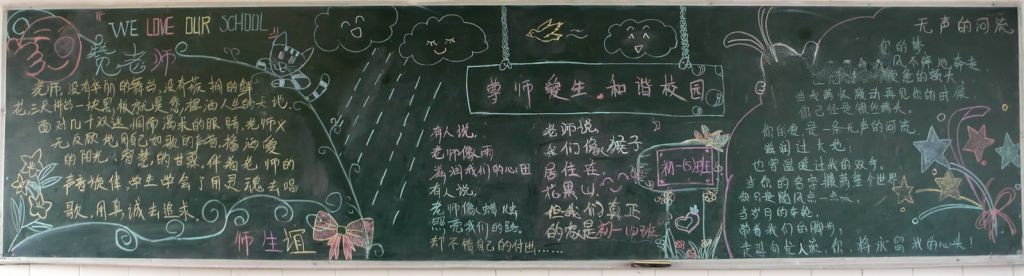 WE LOVE OUR SCHOOL
赞老师
老师,没有华丽的舞台,没有簇拥的鲜
花,三尺讲台一块黑板就是您挥洒人生的天地.
面对几十双迷惘而渴求的眼睛,老师义
无反顾地用自己如歌的和音,播洒爱
的阳光,智慧的甘霖,伴着老师的
声音旋律,学生学会了用灵魂去唱
歌,用真诚去追求.
师生谊
尊师爱生.和谐校园
有人说,
老师像雨
滋润我们的心田
有人说,
老师像蜡烛
照亮我们的路
却不惜自己的付出......
老师说,
我们像猴子
居住在
花果山,
但我们真正
的家是初一(5)班
初一(5)班
无声的河流
你的梦,
风不停地奔走
当我再次激动再见你的时候
你已经是银丝满头.
你的爱是一条无声的河流
滋润过大地;
也曾温暖过我的双手,
当你的名字撒满整个世界
你只是随风点一点头,
当岁月的年轮,
带着我们的脚步,
走进匆忙人流,你,将永留我的心头!